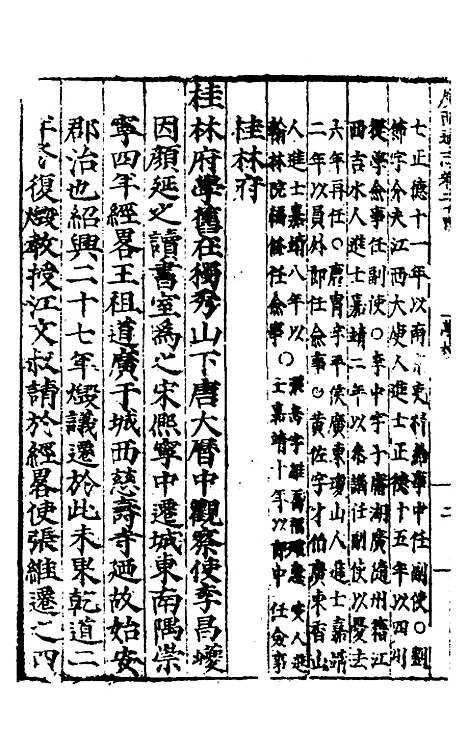 廣西通志卷二十四
七正德十一年以南京吏科給事中任副使○劉
節字介夫江西大庾人進士正德十五年以四川
提學僉事任副使○李中字子庸湖廣隨州籍江
西吉水人進士嘉靖二年以叅議任副使以憂去
六年再任○唐冑字平侯廣東瓊山人進士嘉靖
二年以員外郎任僉事○黃佐字才伯廣東香山
人進士嘉靖八年以翰林院編脩任僉事○
字惟喬福建惠安人進士嘉靖十年以郎中任僉事
桂林府
桂林府學舊在獨秀山下唐大曆中觀察使李昌巙
因顔延之讀書室為之宋熈寧中遷城東南隅崇
寧四年經畧王祖道廣于城西慈壽寺廼故始安
郡治也紹興二十七年燬議遷於此未果乾道二
年冬復燬教授江文叔請於經畧使張維遷之四